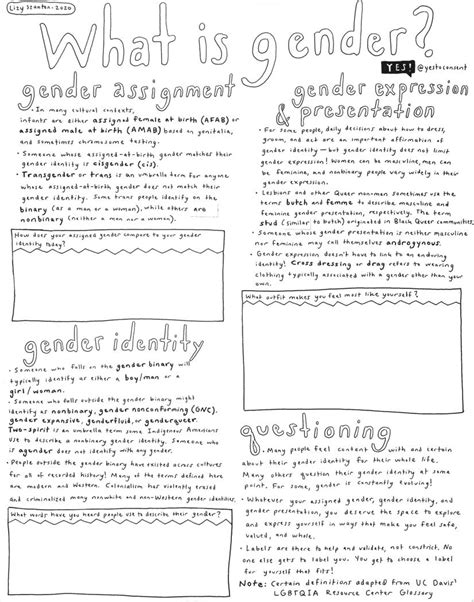 Lizy Szanton · 2020
What is gender?
YES! @yestoconsent
gender assignment
· In many cultural contexts,
infants are either assigned female at birth (AFAB) or
assigned male at birth (AMAB) based on genitalia,
and sometimes chromosome testing.
· Someone whose assigned-at-birth gender matches their
gender identity is cisgender (cis).
· Transgender or trans is an umbrella term for anyone
whose assigned-at-birth gender does not match their
gender identity. Some trans people identify on the
binary (as a man or a woman), while others are
nonbinary (neither a man nor a woman).
How does your assigned gender compare to your gender
identity today?
gender identity
· Someone who falls on the gender binary will
typically identify as either a boy/man or a
girl/woman.
· Someone who falls outside the gender binary might
identify as nonbinary, gender nonconforming (GNC),
gender expansive, genderfluid, or genderqueer.
Two-spirit is an umbrella term some Indigenous Americans
use to describe a nonbinary gender identity. Someone who
is agender does not identify with any gender.
· People outside the gender binary have existed across cultures
for all of recorded history! Many of the terms defined here
are modern and Western. Colonialism has violently erased
and criminalized many nonwhite and non-Western gender identities.
What words have you heard people use to describe their gender?
gender expression
& presentation
· For some people, daily decisions about how to dress,
groom, and act are an important affirmation of
gender identity — but gender identity does not limit
gender expression! Women can be masculine, men can
be feminine, and nonbinary people vary widely in their
gender expression.
· Lesbians and other Queer non-men sometimes use the
terms butch and femme to describe masculine and
feminine gender presentation, respectively. The term
stud (similar to butch) originated in Black Queer communities.
· Someone whose gender presentation is neither masculine
nor feminine may call themselves androgynous.
· Gender expression doesn't have to link to an enduring
identity! Cross dressing or drag refers to wearing
clothing typically associated with a gender other than your
own.
What outfit makes you feel most like yourself?
questioning
· Many people feel content with and certain
about their gender identity for their whole life.
Many others question their gender identity at some
point. For some, gender is constantly evolving!
· Whatever your assigned gender, gender identity, and
gender presentation, you deserve the space to explore
and express yourself in ways that make you feel safe,
valued, and whole.
· Labels are there to help and validate, not constrict. No
one else gets to label you. You get to choose a
label for yourself that fits!
Note: Certain definitions adapted from UC Davis'
LGBTQIA Resource Center Glossary